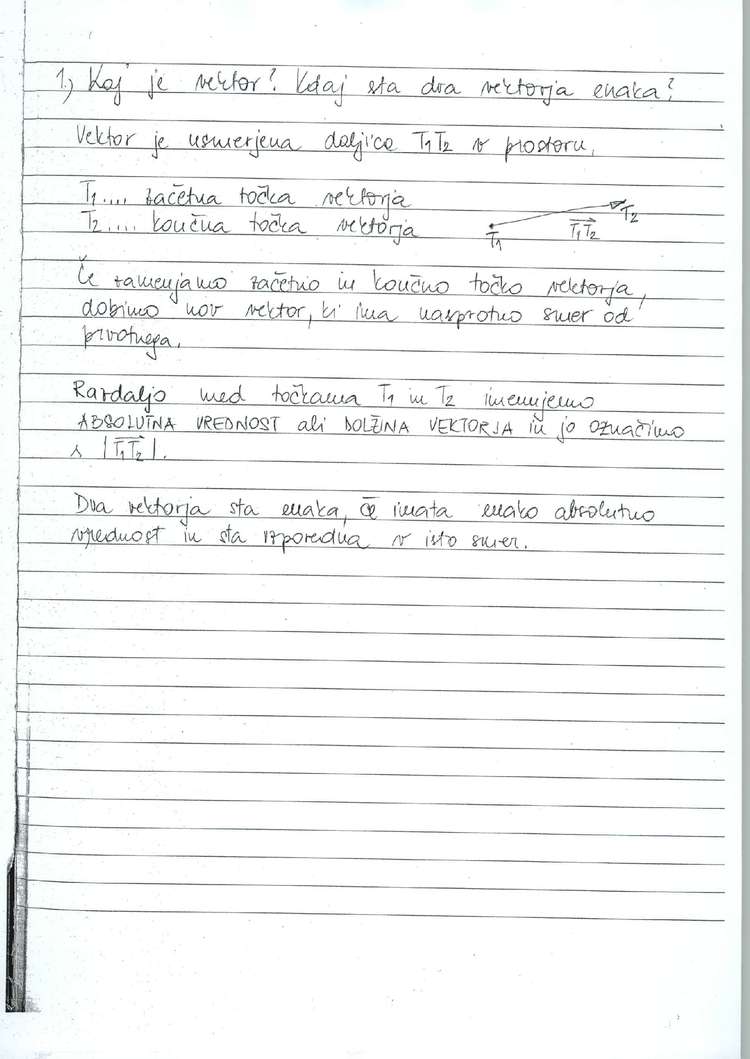 1.) Kaj je vektor? Kdaj sta dva vektorja enaka?
Vektor je usmerjena daljica T₁T₂ v prostoru.
T₁.... začetna točka vektorja
T₂.... končna točka vektorja
T₁ T₁T₂ T₂
Če zamenjamo začetno in končno točko vektorja,
dobimo nov vektor, ki ima nasprotno smer od
prvotnega.
Razdaljo med točkama T₁ in T₂ imenujemo
ABSOLUTNA VREDNOST ali DOLŽINA VEKTORJA in jo označimo
s |T₁T₂|.
Dva vektorja sta enaka, če imata enako absolutno
vrednost in sta vzporedna v isto smer.